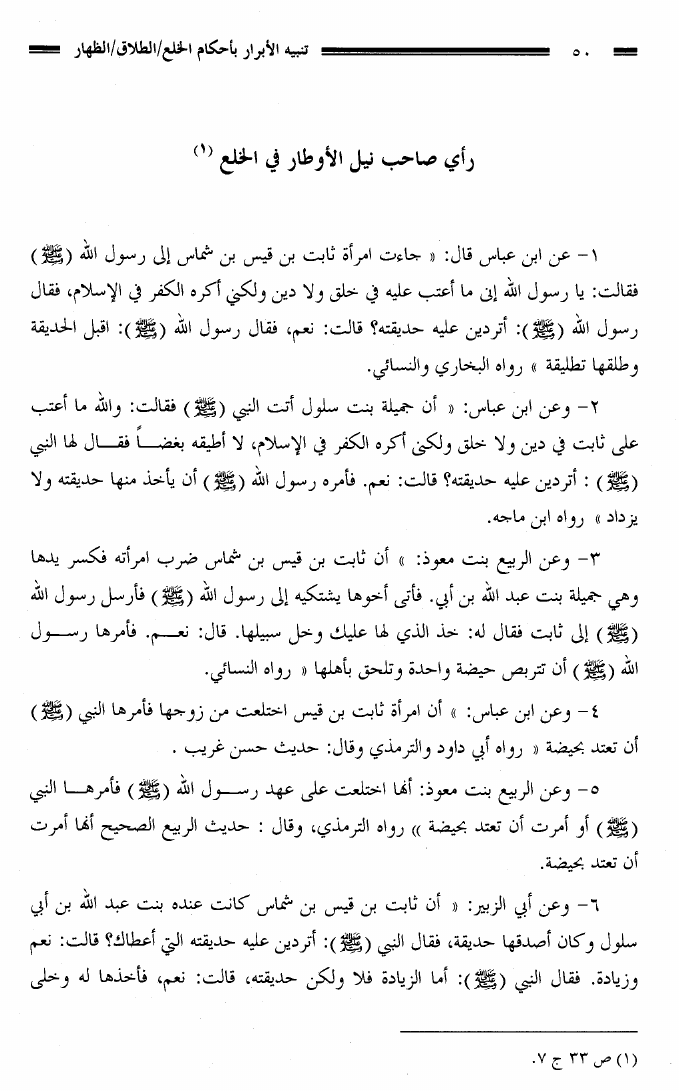 ٥٠ تنبيه الأبرار بأحكام الخلع/الطلاق/الظهار
رأي صاحب نيل الأوطار في الخلع (١)
١- عن ابن عباس قال: « جاءت امرأة ثابت بن قيس بن شماس إلى رسول الله (ﷺ)
فقالت: يا رسول الله إنى ما أعتب عليه في خلق ولا دين ولكني أكره الكفر في الإسلام، فقال
رسول الله (ﷺ): أتردين عليه حديقته؟ قالت: نعم، فقال رسول الله (ﷺ): اقبل الحديقة
وطلقها تطليقة » رواه البخاري والنسائي.
٢- وعن ابن عباس: « أن جميلة بنت سلول أتت النبي (ﷺ) فقالت: والله ما أعتب
على ثابت في دين ولا خلق ولكنى أكره الكفر في الإسلام، لا أطيقه بغضاً فقال لها النبي
(ﷺ) : أتردين عليه حديقته؟ قالت: نعم. فأمره رسول الله (ﷺ) أن يأخذ منها حديقته ولا
يزداد » رواه ابن ماجه.
٣- وعن الربيع بنت معوذ: » أن ثابت بن قيس بن شماس ضرب امرأته فكسر يدها
وهي جميلة بنت عبد الله بن أبي. فأتى أخوها يشتكيه إلى رسول الله (ﷺ) فأرسل رسول الله
(ﷺ) إلى ثابت فقال له: خذ الذي لها عليك وخل سبيلها. قال: نعم. فأمرها رسول
الله (ﷺ) أن تتربص حيضة واحدة وتلحق بأهلها « رواه النسائي.
٤- وعن ابن عباس: » أن امرأة ثابت بن قيس اختلعت من زوجها فأمرها النبي (ﷺ)
أن تعتد بحيضة « رواه أبي داود والترمذي وقال: حديث حسن غريب .
٥- وعن الربيع بنت معوذ: أنها اختلعت على عهد رسول الله (ﷺ) فأمرها النبي
(ﷺ) أو أمرت أن تعتد بحيضة » رواه الترمذي، وقال : حديث الربيع الصحيح أنها أمرت
أن تعتد بحيضة.
٦- وعن أبي الزبير: « أن ثابت بن قيس بن شماس كانت عنده بنت عبد الله بن أبي
سلول وكان أصدقها حديقة، فقال النبي (ﷺ): أتردين عليه حديقته التي أعطاك؟ قالت: نعم
وزيادة. فقال النبي (ﷺ): أما الزيادة فلا ولكن حديقته، قالت: نعم، فأخذها له وخلى
(١) ص ٣٣ ج ٧.